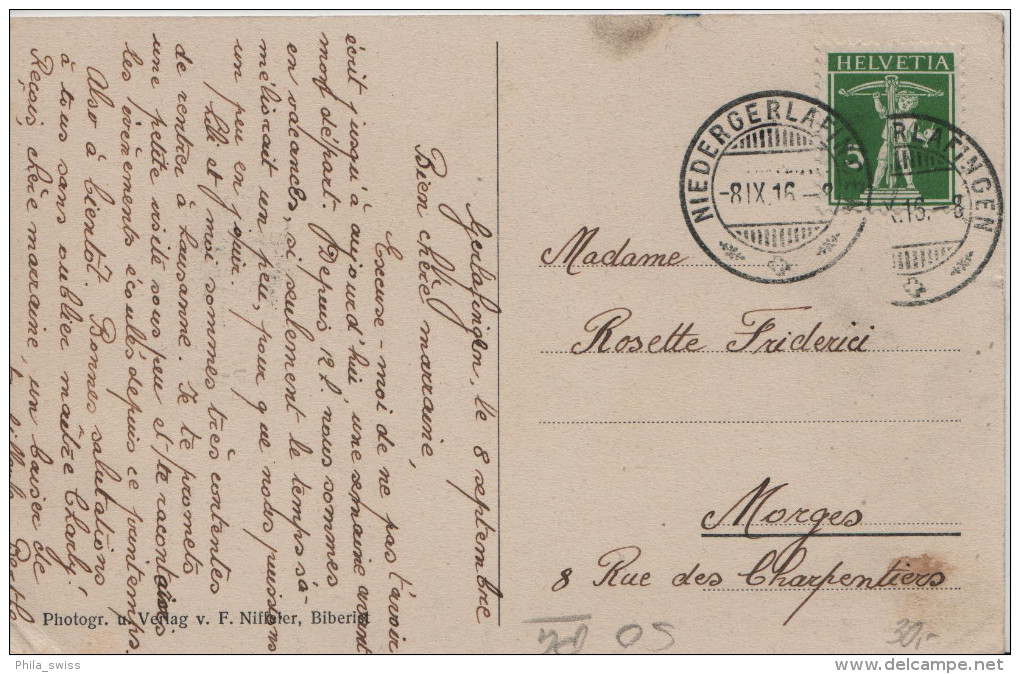 Gerlafingen, le 8 septembre
Bien chère marraine,
Excuse-moi de ne pas t'avoir
écrit jusqu'à aujourd'hui, une semaine avant
mon départ. Depuis 12 j. nous sommes
en vacances, si seulement le temps s'a-
méliorait un peu pour que nous puissions
un peu en jouir.
Lili et moi sommes très contentes
de rentrer à Lausanne. Je te promets
une petite visite sous peu et te raconterai
les évènements écoulés depuis ce printemps.
Also à bientôt. Bonnes salutations
à tous sans oublier maître Charly.
Reçois, chère marraine, un baiser de
Berthe
HELVETIA
5
NIEDERGERLAFINGEN
-8.IX.16.-8
RLAFINGEN
X.16.-8
Madame
Rosette Friderici
Morges
8 Rue des Charpentiers
Photogr. u. Verlag v. F. Niffeler, Biberist
50
30,-
Phila_swiss
www.delcampe.net